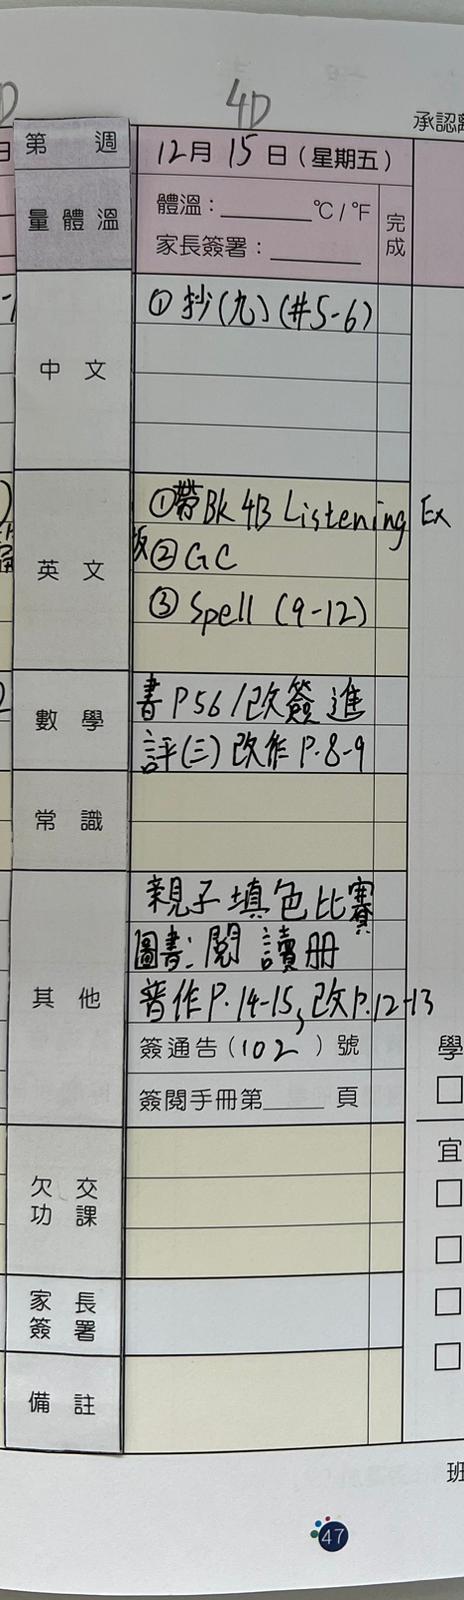 4D
承認
第 週
12月15日(星期五)
量體溫
體溫：______℃/℉
完成
家長簽署：______
中文
①抄(九)(#5-6)
英文
①帶Bk 4B Listening Ex
②GC
③Spell (9-12)
數學
書P56/改簽進
評(三)改作P.8-9
常識
其他
親子填色比賽
圖書:閱讀册
普作P.14-15,改P.12-13
簽通告(102)號
簽閱手冊第____頁
學
宜
欠交
功課
家長
簽署
備註
班
47